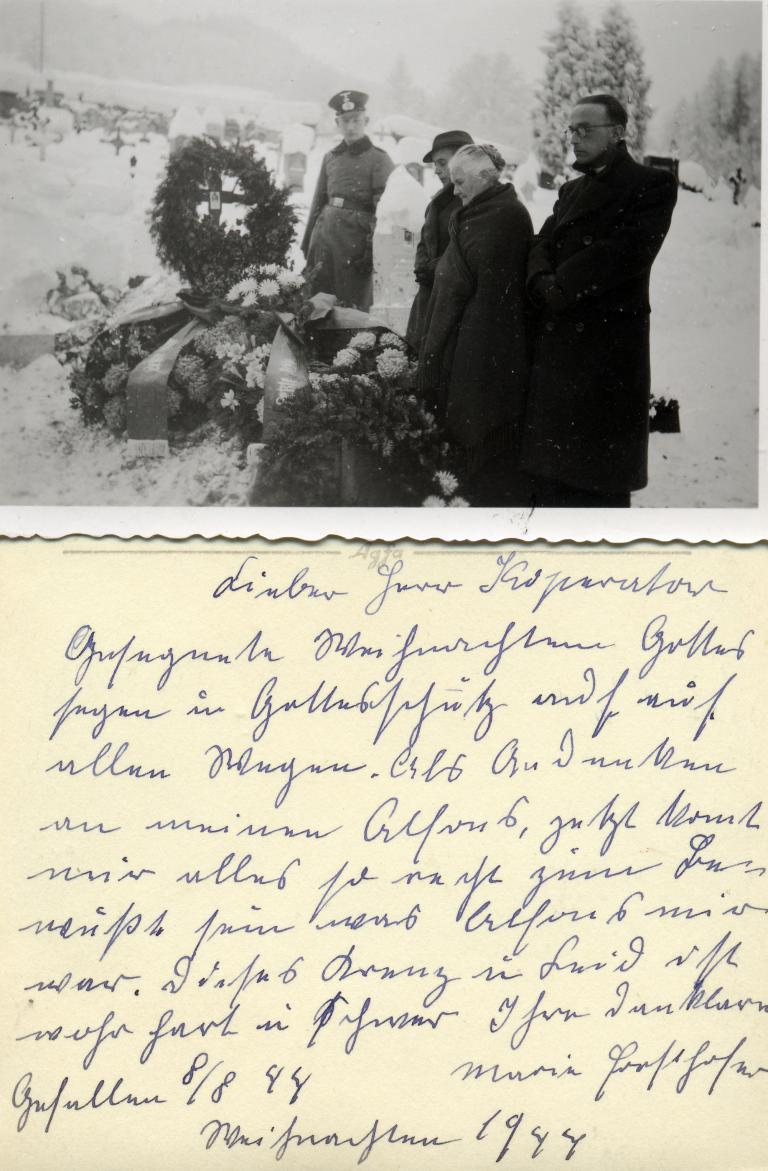 Agfa
Lieber Herr Koperator
Gesegnete Weihnachten Gottes
segen u Gottesschutz auf
allen Wegen. Als Andenken
an meinen Alfons, jetzt komt
mir alles so recht zum Be-
wußt sein was Alfons mir
war. Dieses Kreuz u Leid ist
wohr hart u schwer Ihre dankbare
Marie Forsthofer
Gefallen 8/8 44
Weihnachten 1944